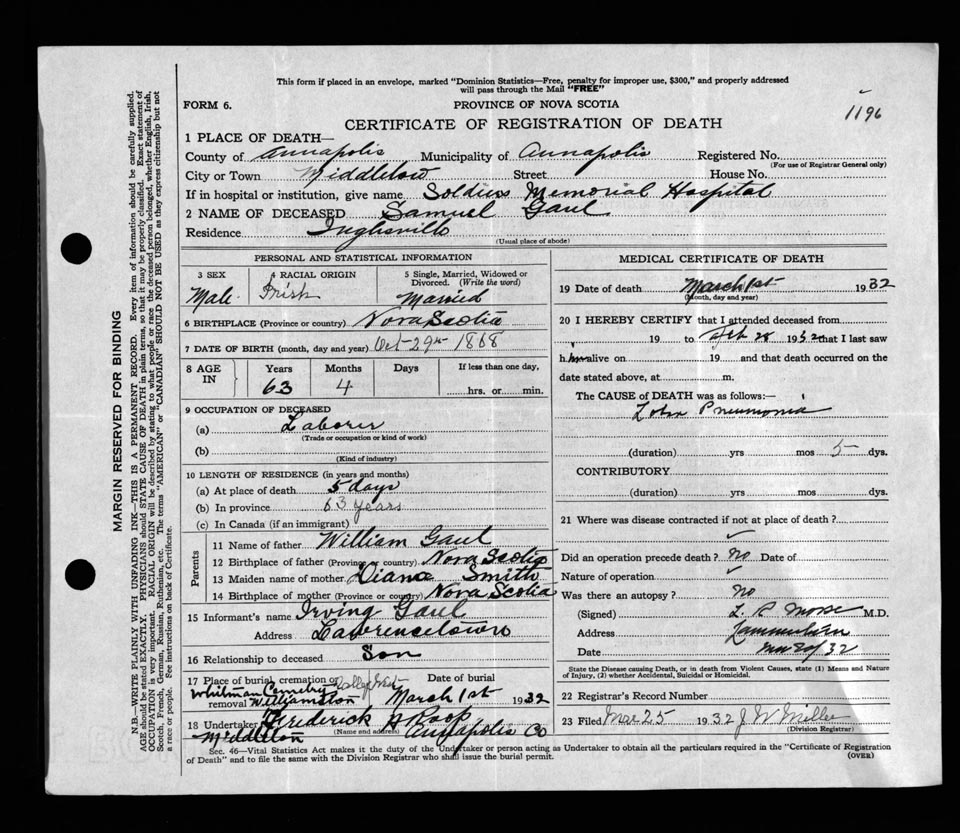 This form if placed in an envelope, marked "Dominion Statistics—Free, penalty for improper use, $300," and properly addressed
will pass through the Mail "FREE"
FORM 6.
PROVINCE OF NOVA SCOTIA
1196
CERTIFICATE OF REGISTRATION OF DEATH
1 PLACE OF DEATH—
County of Annapolis Municipality of Annapolis Registered No.
(For use of Registrar General only)
City or Town Middleton Street House No.
If in hospital or institution, give name Soldiers Memorial Hospital
2 NAME OF DECEASED Samuel Gaul
Residence Inglisville
(Usual place of abode)
PERSONAL AND STATISTICAL INFORMATION
3 SEX 4 RACIAL ORIGIN 5 Single, Married, Widowed or
Divorced. (Write the word)
Male Irish Married
6 BIRTHPLACE (Province or country) Nova Scotia
7 DATE OF BIRTH (month, day and year) Oct - 29th 1868
8 AGE IN Years Months Days If less than one day,
63 4 hrs. or min.
9 OCCUPATION OF DECEASED
(a) Laborer
(Trade or occupation or kind of work)
(b)
(Kind of industry)
10 LENGTH OF RESIDENCE (in years and months)
(a) At place of death 5 days
(b) In province 63 years
(c) In Canada (if an immigrant)
Parents
11 Name of father William Gaul
12 Birthplace of father (Province or country) Nova Scotia
13 Maiden name of mother Diana Smith
14 Birthplace of mother (Province or country) Nova Scotia
15 Informant's name Irving Gaul
Address Lawrencetown
16 Relationship to deceased Son
17 Place of burial, cremation or removal Date of burial
Whitman Cemetery
Williamston March 1st 1932
18 Undertaker Frederick A Roop
(Name and address)
Middleton Annapolis Co
MEDICAL CERTIFICATE OF DEATH
19 Date of death March 1st 1932
(Month, day and year)
20 I HEREBY CERTIFY that I attended deceased from
19 to Feb 28 1932 that I last saw
him alive on 19 and that death occurred on the
date stated above, at m.
The CAUSE of DEATH was as follows:—
Lobar Pneumonia
(duration) yrs mos 5 dys.
CONTRIBUTORY
(duration) yrs mos dys.
21 Where was disease contracted if not at place of death?
Did an operation precede death? No Date of
Nature of operation
Was there an autopsy? No
(Signed) L. R. Morse M.D.
Address Lawrencetown
Date
State the Disease causing Death, or in death from Violent Causes, state (1) Means and Nature
of Injury, (2) whether Accidental, Suicidal or Homicidal.
22 Registrar's Record Number
23 Filed Mar 25 1932 J W Miller
(Division Registrar)
Sec. 46—Vital Statistics Act makes it the duty of the Undertaker or person acting as Undertaker to obtain all the particulars required in the "Certificate of Registration
of Death" and to file the same with the Division Registrar who shall issue the burial permit.
(OVER)
MARGIN RESERVED FOR BINDING
N.B.—WRITE PLAINLY WITH UNFADING INK—THIS IS A PERMANENT RECORD. Every item of information should be carefully supplied.
AGE should be stated EXACTLY. PHYSICIANS should STATE CAUSE OF DEATH in plain terms, so that it may be properly classified. Exact statement of
OCCUPATION is very important. RACIAL ORIGIN will be described by stating to what people or race the deceased person belonged, whether English, Irish,
Scotch, French, German, Russian, Ruthenian, etc. The terms "AMERICAN" or "CANADIAN" SHOULD NOT BE USED as they express citizenship but not
a race or people. See instructions on back of Certificate.